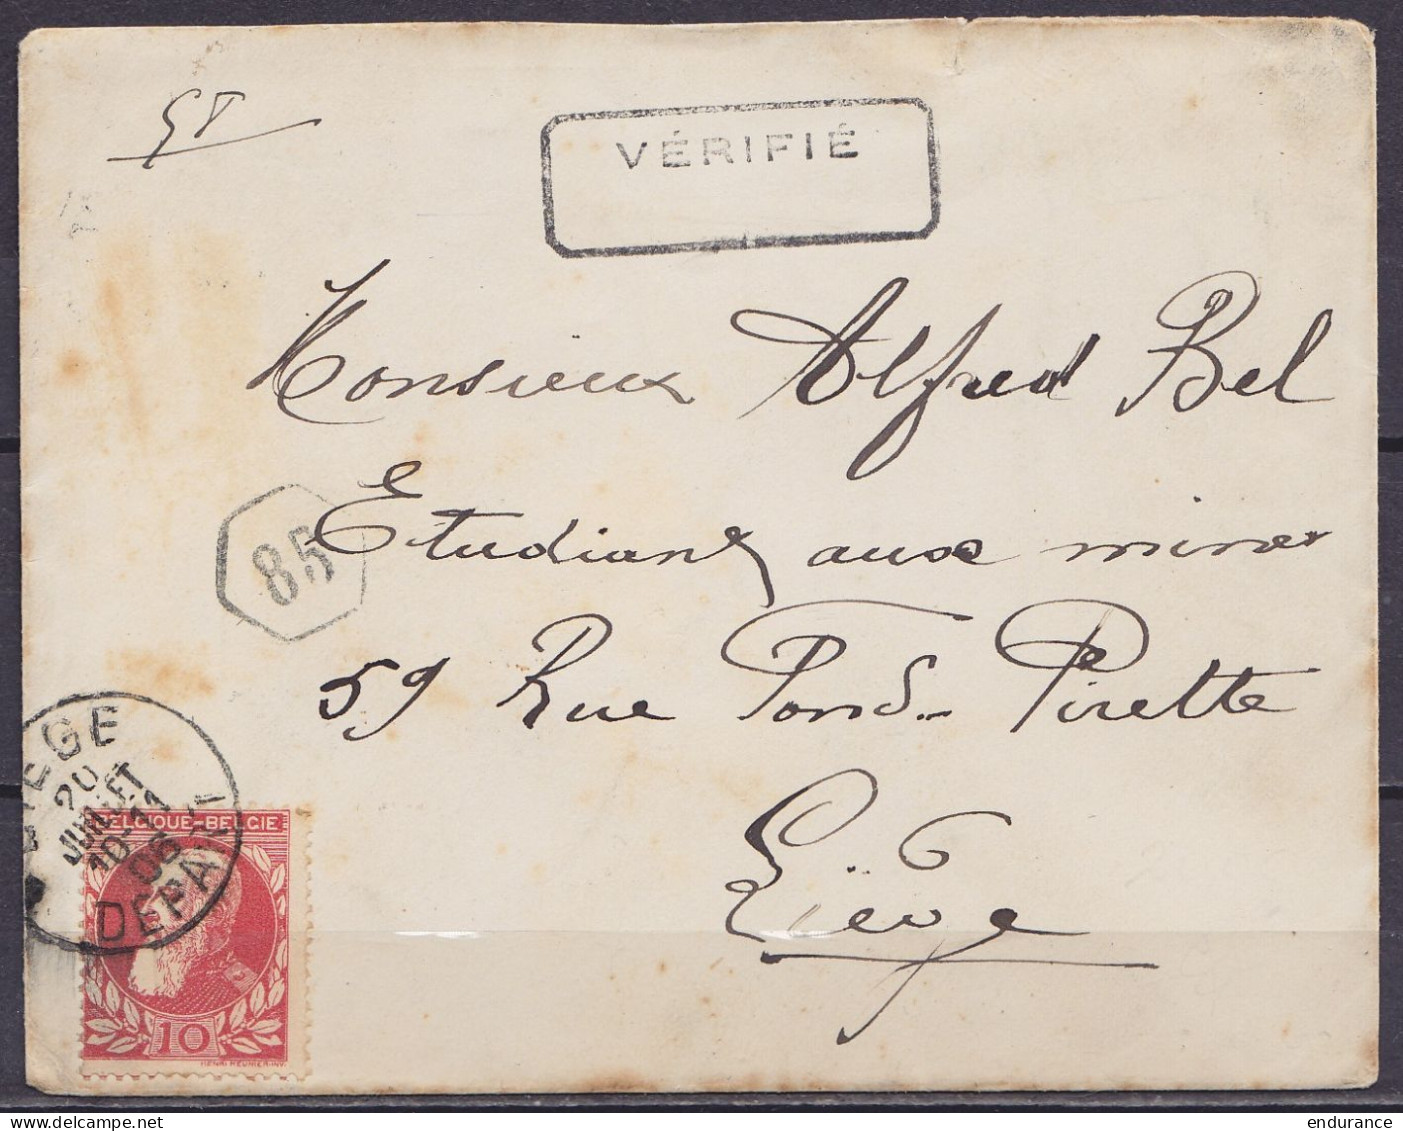 GT
VÉRIFIÉ
Monsieur Alfred Bel
85
Etudiant aux mines
59 Rue Fond-Pirette
Liège
LIEGE
20
JUILLET
10-11
05
DEPART
BELGIQUE-BELGIE
10
HENRI MEUNIER.INV.
endurance